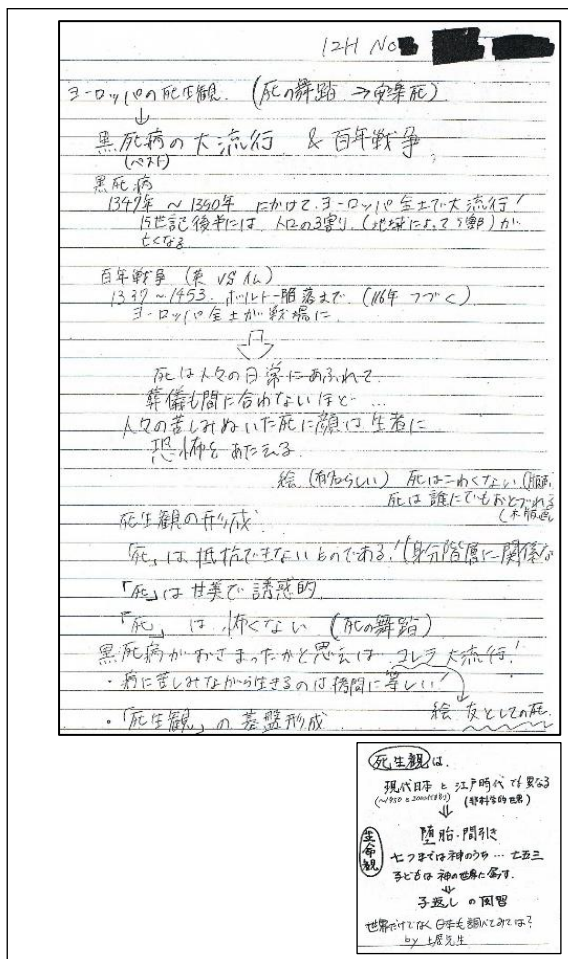 12H No
ヨーロッパの死生観. (死の舞踏 → 安楽死)
↓
黒死病の大流行 & 百年戦争
(ペスト)
黒死病
1347年 ~ 1350年 にかけて、ヨーロッパ全土で大流行!
15世記後半には 人口の3割り. (地域によって5割) が
亡くなる
百年戦争 (英 VS 仏)
1337~1453. ボルドー陥落まで. (116年 つづく)
ヨーロッパ全土が戦場に
死は人々の日常にあふれて
葬儀も間に合わないほど…
人々の苦しみぬいた死に顔は生者に
恐怖をあたえる
絵 (らしい) 死はこわくない
死は誰にでもおとづれる
(木版画)
死生観の形成
「死」は抵抗できないものである! (身分階層に関係な
「死」は甘美で誘惑的
「死」は怖くない (死の舞踏)
黒死病がおさまったかと思えば コレラ 大流行!
・病に苦しみながら生きるのは拷問に等しい!
・「死生観」の基盤形成
絵 友としての死.
死生観は、
現代日本 と 江戸時代 でも異なる
(非科学的世界)
⇓
生命観
堕胎・間引き
七つまでは神のうち… 七五三
子どもは神の世界に属す.
⇓
子返し の風習
世界だけでなく日本も調べてみては?
by 土居先生